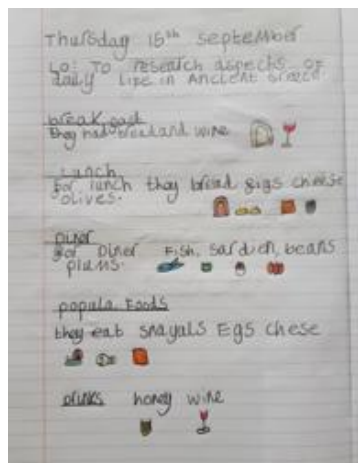 Thursday 15th September
LO: To research aspects of
daily life in Ancient Greece
breakfast
they had bread and wine
Lunch
for lunch they bread figs cheese
olives.
Diner
for Diner Fish, sardien, beans
plums.
popula Foods
they eat snayals Egs chese
drinks honey wine